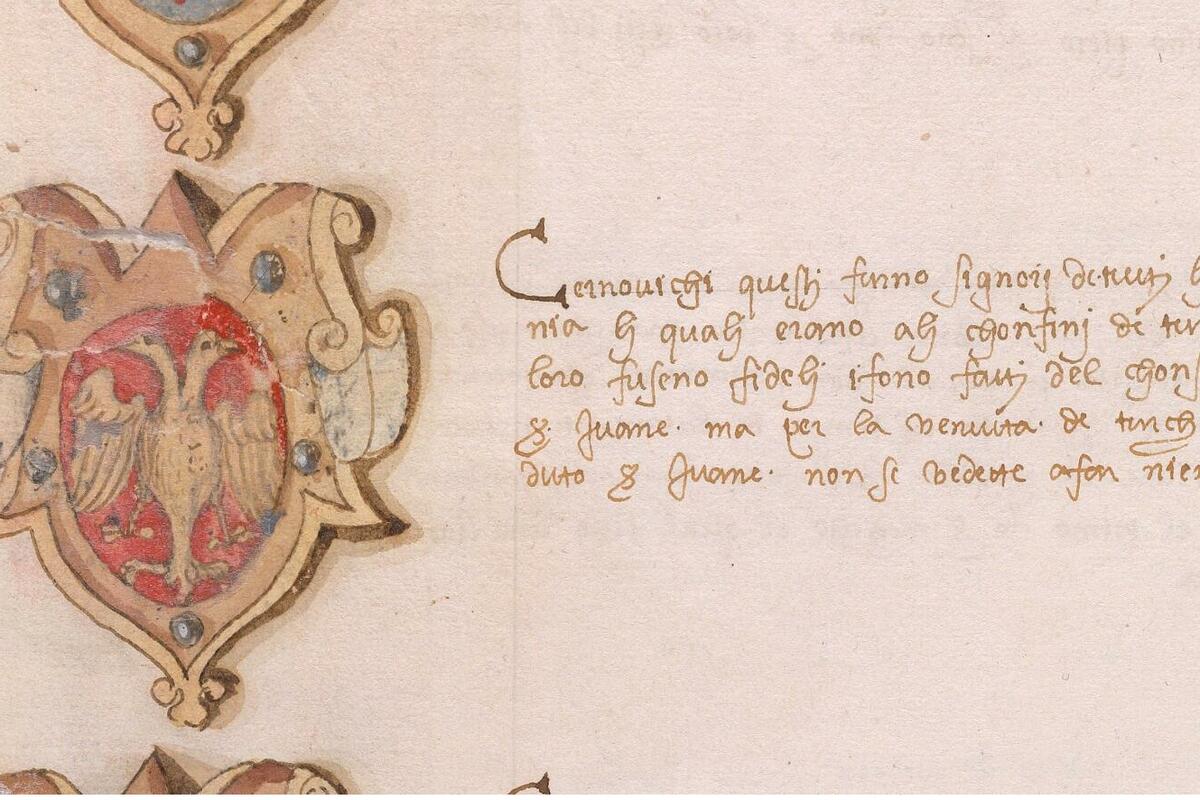 Cernovichi questi furno signorj de tuttj
nia li quali erano ali chonfini de
loro fuseno fideli ifono fattj del chons
& Juane · ma per la venuita · de turch
duto & Juane · non se vedette afar nien